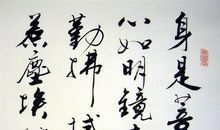 身是菩
心如明鏡
勤拂拭
惹塵埃